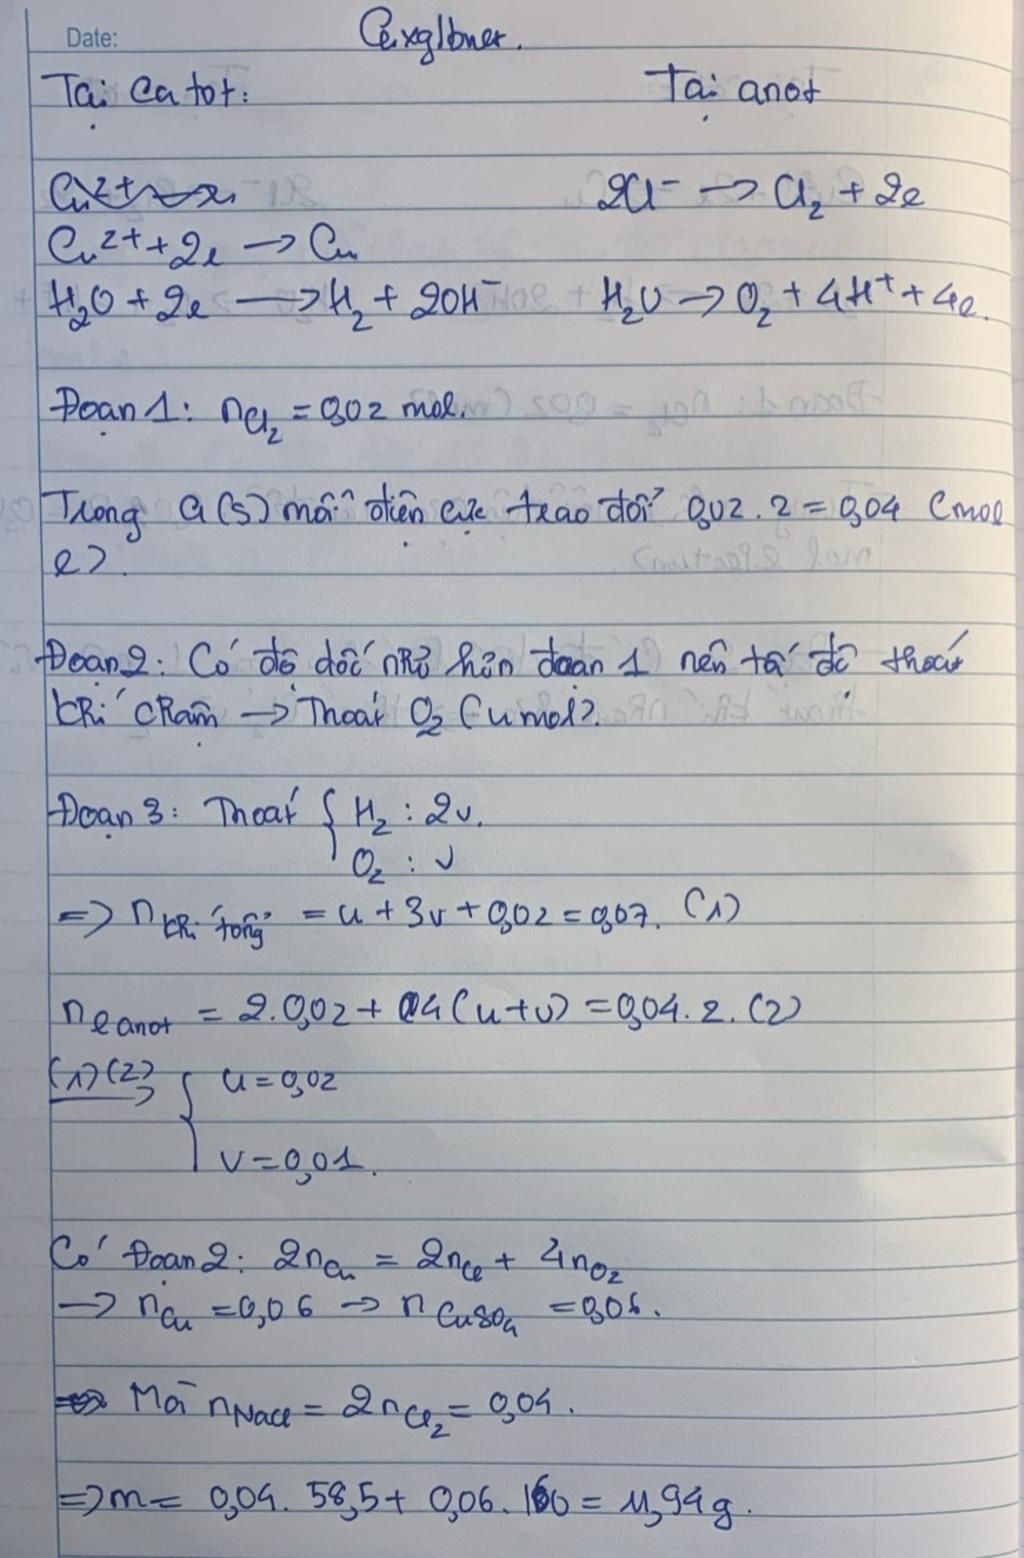 Date:
Tại Catot: Tại anot
2Cl⁻ → Cl₂ + 2e
Cu²⁺ + 2e → Cu
H₂O + 2e → H₂ + 2OH⁻ H₂O → O₂ + 4H⁺ + 4e.
Đoạn 1: nCl₂ = 0,02 mol.
Trong a(s) mỗi điện cực trao đổi 0,02 . 2 = 0,04 (mol
e).
Đoạn 2: Có độ dốc nhỏ hơn đoạn 1 nên tố độ thoát
khí chậm → Thoát O₂ (u mol).
Đoạn 3: Thoát { H₂ : 2v.
O₂ : v
=> n khí tổng = u + 3v + 0,02 = 0,07. (1)
n e anot = 2.0,02 + 4(u+v) = 0,04.2. (2)
(1)(2) → { u = 0,02
v = 0,01.
Có Đoạn 2: 2nCu = 2nCl + 4nO₂
→ nCu = 0,06 → nCuSO₄ = 0,06.
Mà nNaCl = 2nCl₂ = 0,04.
=> m = 0,04. 58,5 + 0,06. 160 = 11,94g.